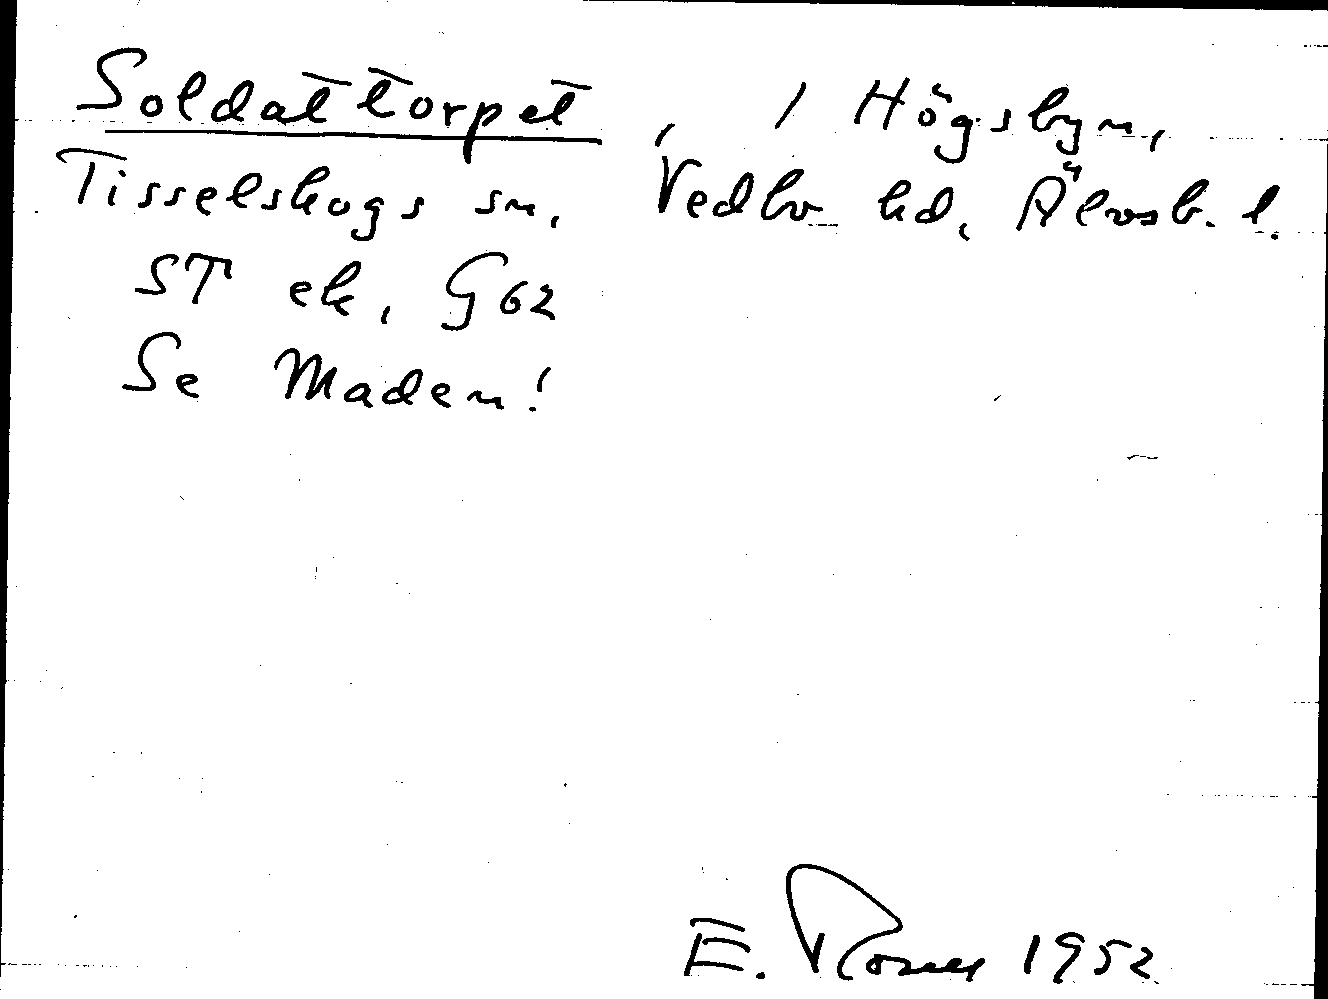 Soldattorpet, 1 Högsbyn,
Tisselskogs sn, Vedbo hd, Älvsb. l.
ST ek, G62
Se Maden!
E. 1952